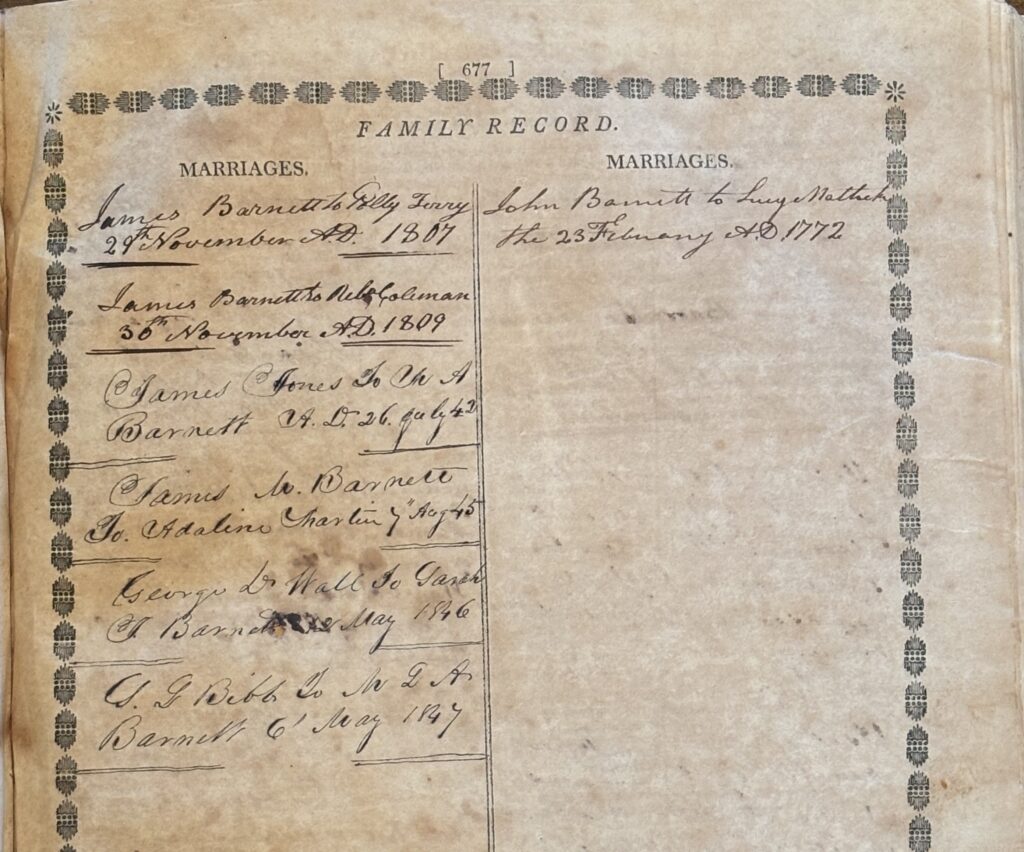 [ 677 ]
FAMILY RECORD.
MARRIAGES.
James Barnett to Polly Terry
29th November A.D. 1807
James Barnett to Reb Coleman
30th November A.D. 1809
James Jones To M A
Barnett A. D. 26. July 42
James M. Barnett
To. Adaline 7" Aug 45
George D Wall To Sarah
T Barnett May 1846
G Bibb To M A
Barnett 6' May 1847
MARRIAGES.
John Barnett to Lucy
the 23 February A.D. 1772